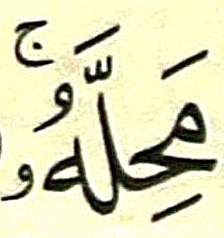 مَحِلَّهُۥۚ